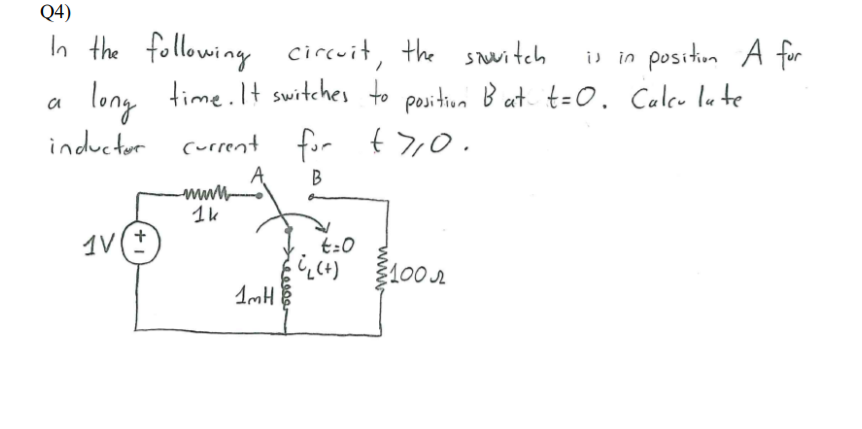 Q4)
In the following circuit, the switch is in position A for
a long time. It switches to position B at t=0. Calculate
inductor current for t ≥ 0.
A B
1k
1V + - t=0
i_L(t) 100Ω
1mH